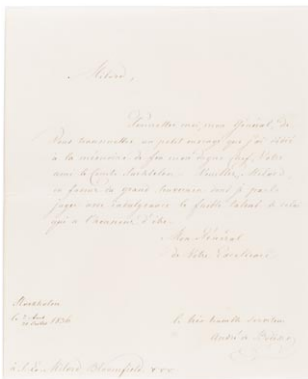 Milord,
Permettez moi, mon Général, de
Vous transmettre un petit ouvrage que j'ai dédié
à la mémoire de feu mon digne chef, Votre
ami le Comte Suchtelen. Veuillez, Milord,
en faveur du grand souvenir dont je parle
juger avec indulgence le faible talent de celui
qui a l'honneur d'être
Mon Général
de Votre Excellence
Stockholm
le 1836
le très humble serviteur
André de
à S. E. Milord Bloomfield, &&&